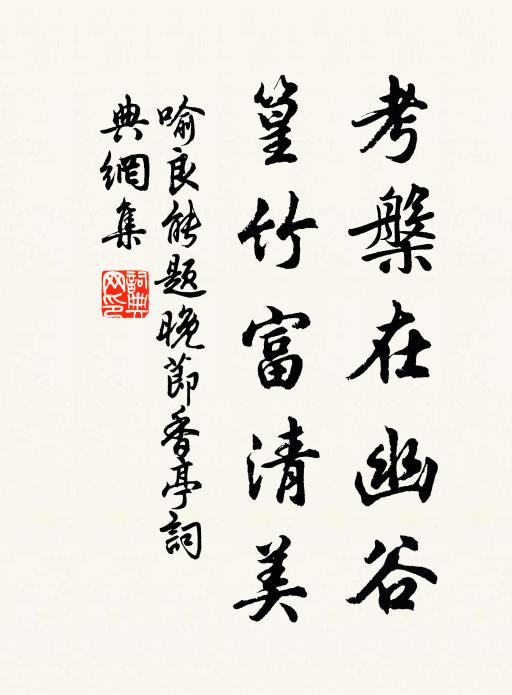 考槃在幽谷
篁竹富清美
喻良能題晚節香亭詞
典網集
詞典
网印